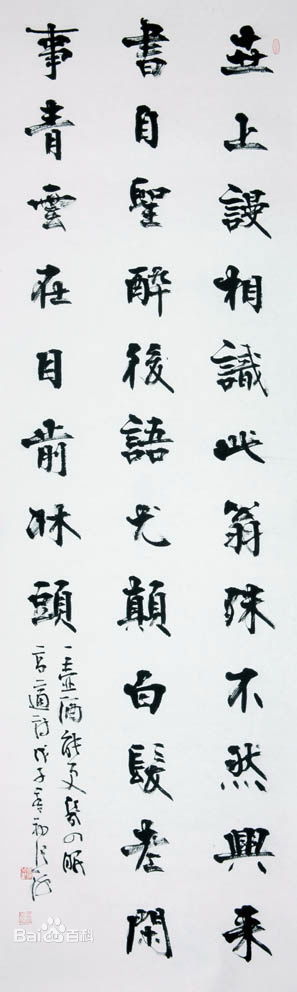 世上謾相識此翁殊不然興来
書自聖醉後語尤顛白髮老閑
事青雲在目前牀頭
一壺酒能更幾回眠
高適詩戊子春初
Bai百科